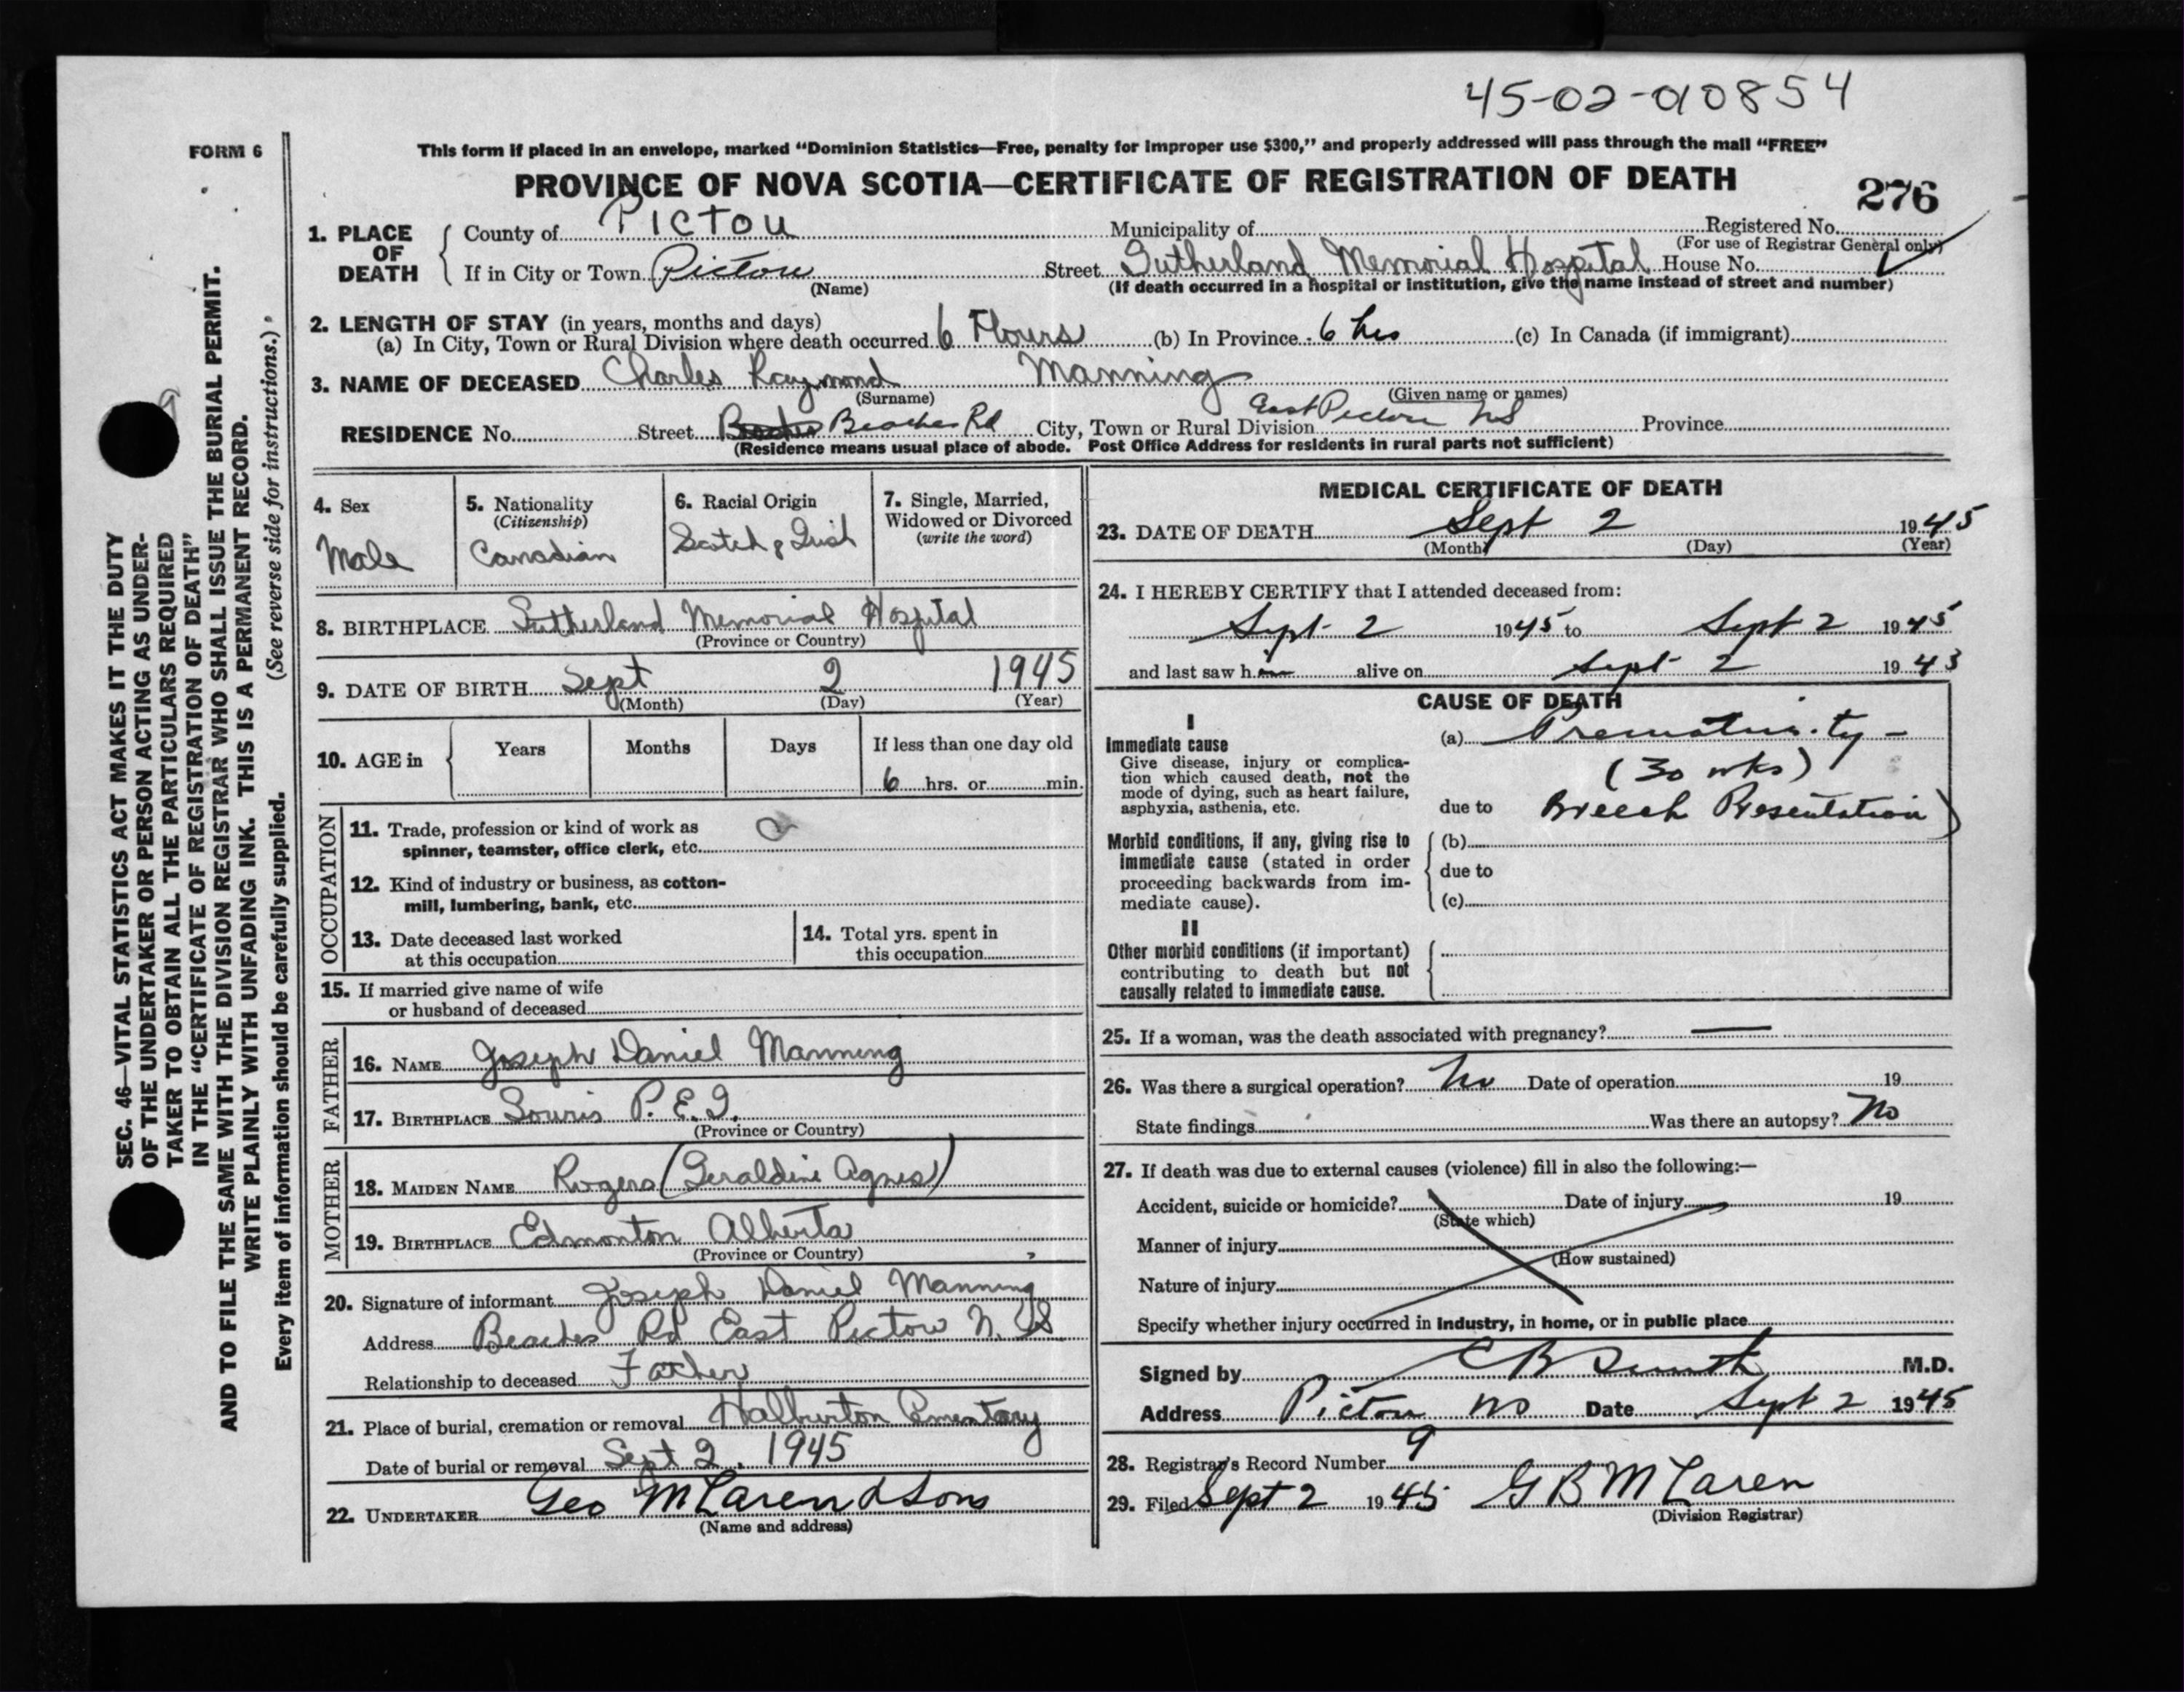 45-02-010854
FORM 6
This form if placed in an envelope, marked “Dominion Statistics—Free, penalty for improper use $300,” and properly addressed will pass through the mail “FREE”
PROVINCE OF NOVA SCOTIA—CERTIFICATE OF REGISTRATION OF DEATH
276
1. PLACE OF DEATH County of Pictou Municipality of Registered No.
(For use of Registrar General only)
If in City or Town Pictou Street Sutherland Memorial Hospital House No.
(Name) (If death occurred in a hospital or institution, give the name instead of street and number)
2. LENGTH OF STAY (in years, months and days)
(a) In City, Town or Rural Division where death occurred 6 Hours (b) In Province 6 hrs (c) In Canada (if immigrant)
3. NAME OF DECEASED Charles Raymond Manning
(Surname) (Given name or names)
RESIDENCE No. Street Beaches Rd City, Town or Rural Division East Pictou NS Province
(Residence means usual place of abode. Post Office Address for residents in rural parts not sufficient)
4. Sex
Male
5. Nationality
(Citizenship)
Canadian
6. Racial Origin
Scotch & Irish
7. Single, Married,
Widowed or Divorced
(write the word)
8. BIRTHPLACE Sutherland Memorial Hospital
(Province or Country)
9. DATE OF BIRTH Sept 2 1945
(Month) (Day) (Year)
10. AGE in Years Months Days If less than one day old
6 hrs. or min.
OCCUPATION
11. Trade, profession or kind of work as
spinner, teamster, office clerk, etc.
12. Kind of industry or business, as cotton-
mill, lumbering, bank, etc.
13. Date deceased last worked
at this occupation
14. Total yrs. spent in
this occupation
15. If married give name of wife
or husband of deceased
FATHER
16. NAME Joseph Daniel Manning
17. BIRTHPLACE Souris P.E.I.
(Province or Country)
MOTHER
18. MAIDEN NAME Rogers (Geraldine Agnes)
19. BIRTHPLACE Edmonton Alberta
(Province or Country)
20. Signature of informant Joseph Daniel Manning
Address Beaches Rd East Pictou N.S
Relationship to deceased Father
21. Place of burial, cremation or removal Halburton Cementary
Date of burial or removal Sept 2, 1945
22. UNDERTAKER Geo McLaren & Sons
(Name and address)
MEDICAL CERTIFICATE OF DEATH
23. DATE OF DEATH Sept 2 1945
(Month) (Day) (Year)
24. I HEREBY CERTIFY that I attended deceased from:
Sept 2 1945 to Sept 2 1945
and last saw him alive on Sept 2 1943
CAUSE OF DEATH
I
Immediate cause
Give disease, injury or complica-
tion which caused death, not the
mode of dying, such as heart failure,
asphyxia, asthenia, etc.
(a) Prematurity -
(30 wks)
due to Breech Presentation)
Morbid conditions, if any, giving rise to
immediate cause (stated in order
proceeding backwards from im-
mediate cause).
(b)
due to
(c)
II
Other morbid conditions (if important)
contributing to death but not
causally related to immediate cause.
25. If a woman, was the death associated with pregnancy? —
26. Was there a surgical operation? No Date of operation 19
State findings Was there an autopsy? No
27. If death was due to external causes (violence) fill in also the following:—
Accident, suicide or homicide? Date of injury 19
(State which)
Manner of injury
(How sustained)
Nature of injury
Specify whether injury occurred in industry, in home, or in public place
Signed by C B Smith M.D.
Address Pictou NS Date Sept 2 1945
28. Registrar's Record Number 9
29. Filed Sept 2 1945 G B McLaren
(Division Registrar)
SEC. 46—VITAL STATISTICS ACT MAKES IT THE DUTY
OF THE UNDERTAKER OR PERSON ACTING AS UNDER-
TAKER TO OBTAIN ALL THE PARTICULARS REQUIRED
IN THE “CERTIFICATE OF REGISTRATION OF DEATH”
AND TO FILE THE SAME WITH THE DIVISION REGISTRAR WHO SHALL ISSUE THE BURIAL PERMIT.
WRITE PLAINLY WITH UNFADING INK. THIS IS A PERMANENT RECORD.
Every item of information should be carefully supplied. (See reverse side for instructions.)